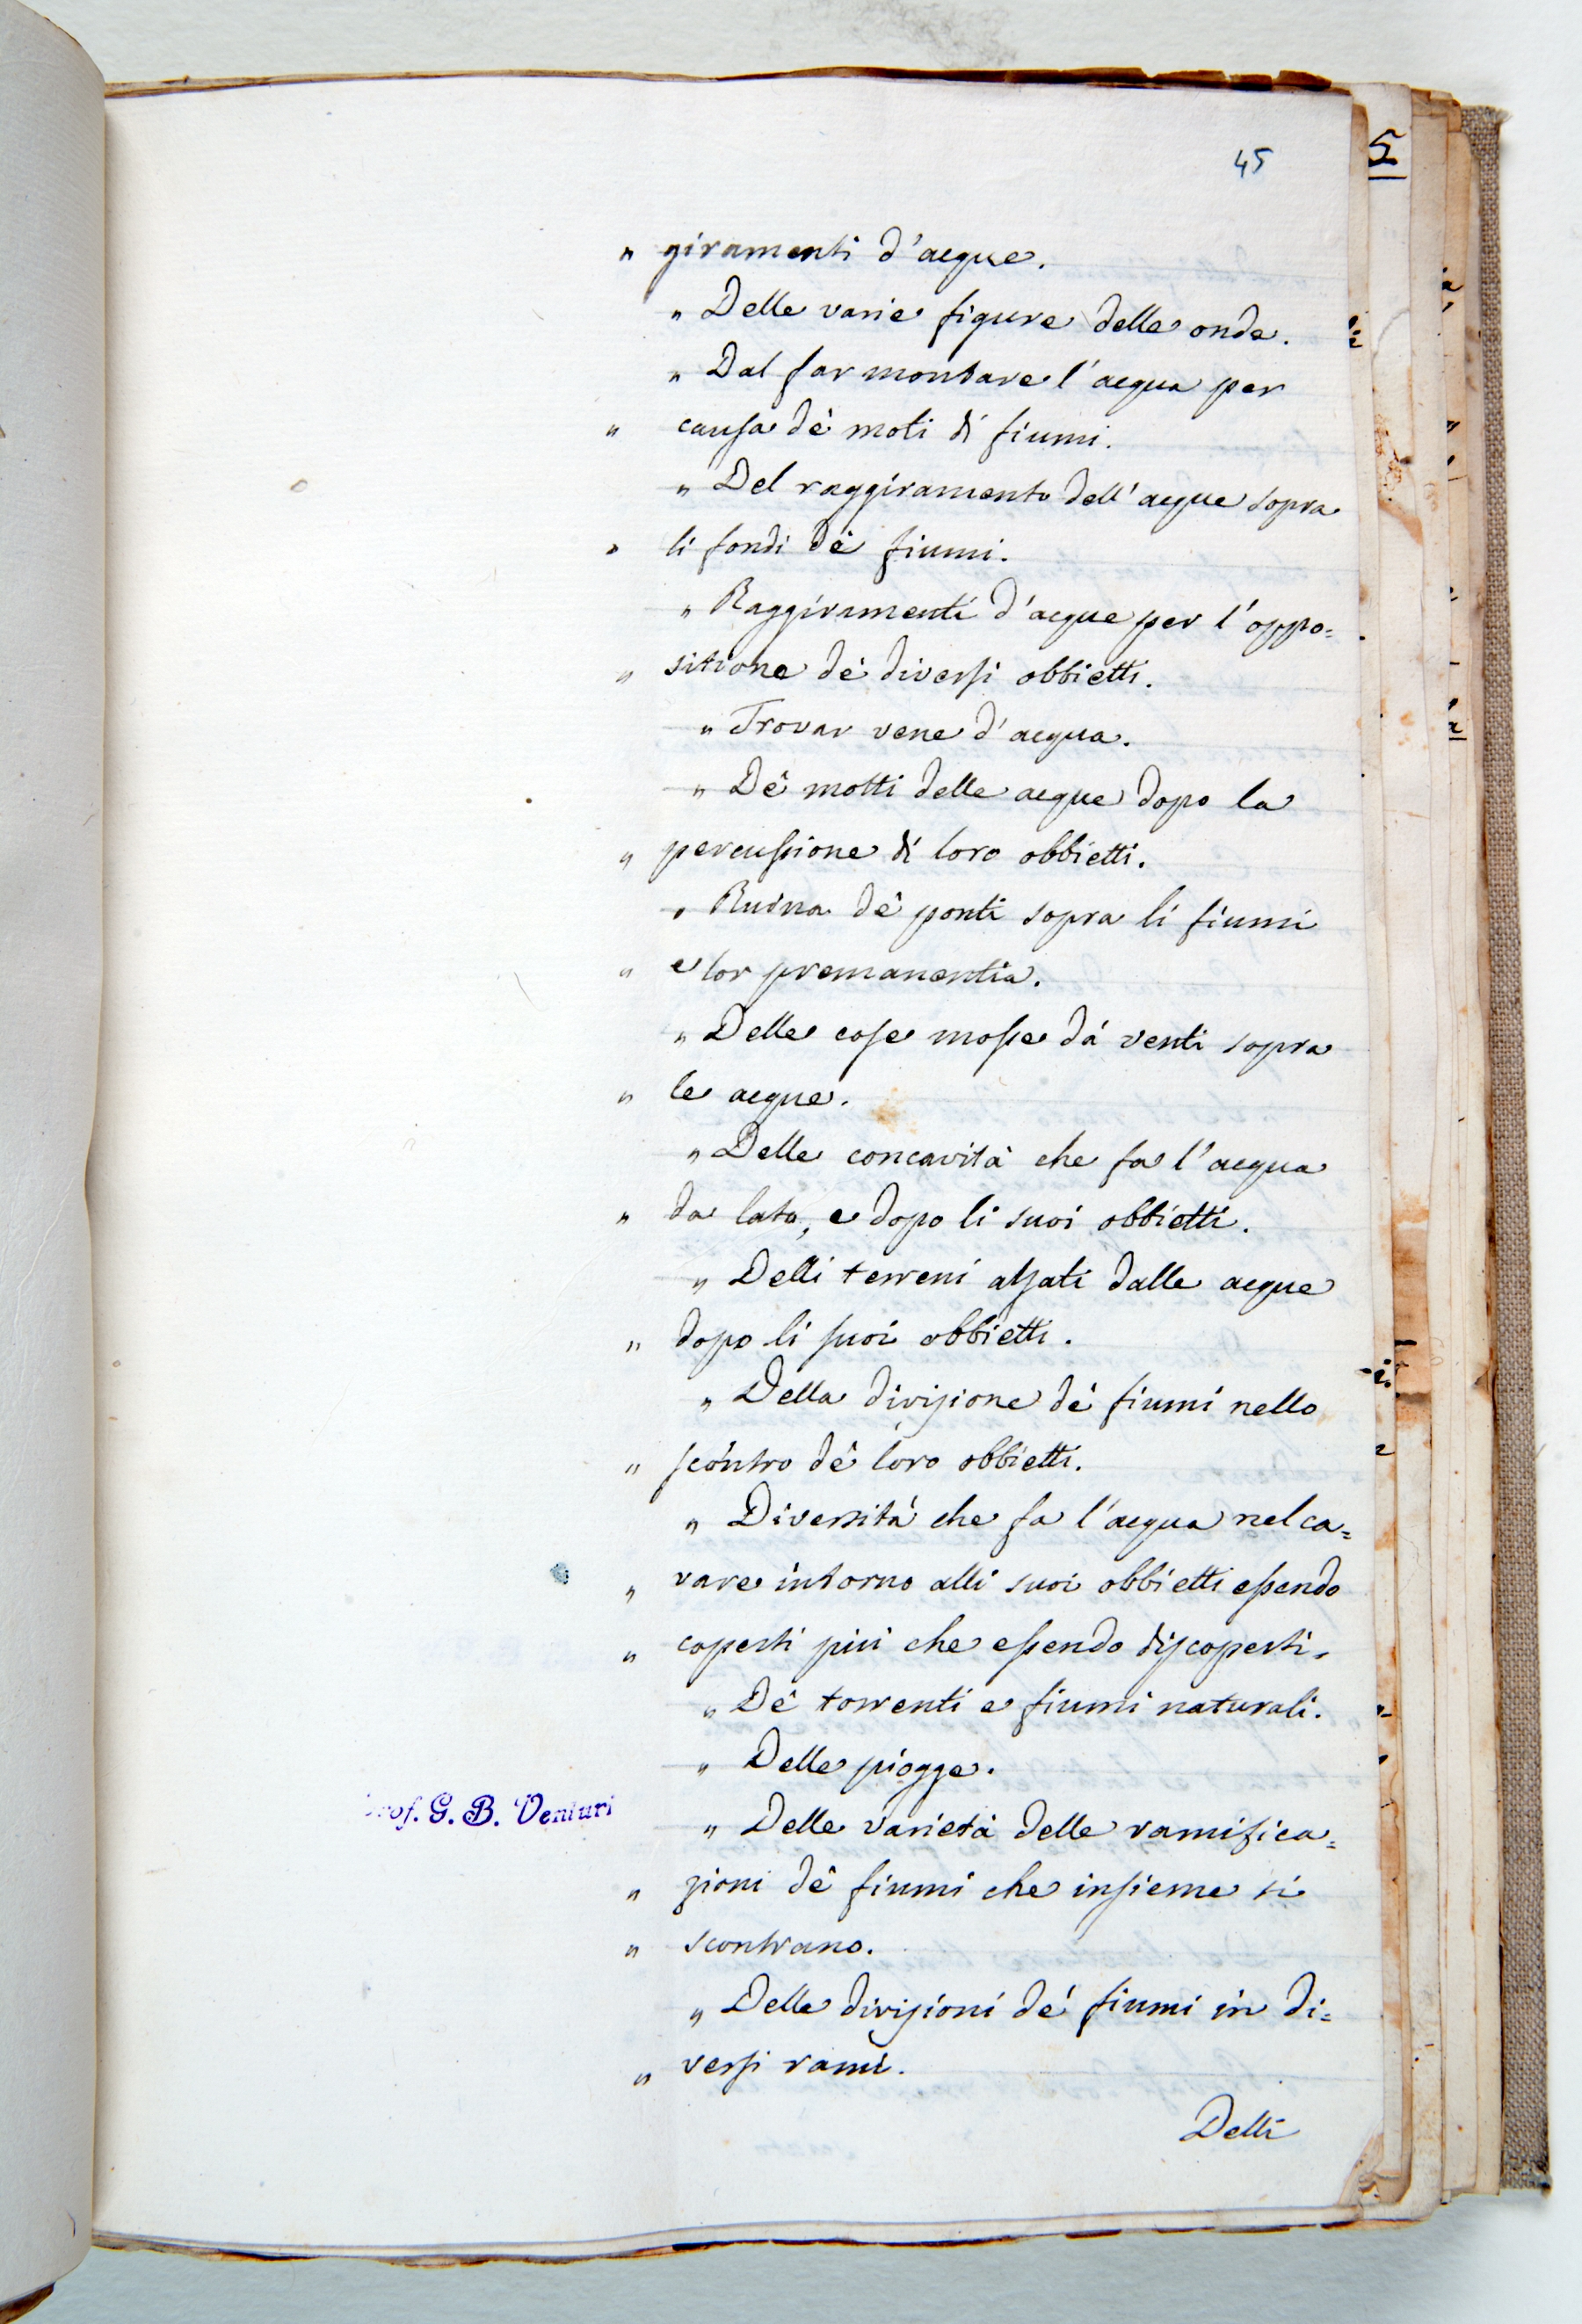 45
" giramenti d'acque.
" Delle varie figure delle onde.
" Dal far montare l'acqua per
" causa de' moti di fiumi.
" Del raggiramento dell'acque sopra
" li fondi de' fiumi.
" Raggiramenti d'acque per l'oppo=
" sitione de' diversi obbietti.
" Trovar vene d'acqua.
" De' motti delle acque dopo la
" percussione di loro obbietti.
" Ruina de' ponti sopra li fiumi
" e lor premanentia.
" Delle cose mosse da' venti sopra
" le acque.
" Delle concavità che fa l'acqua
" da lato, e dopo li suoi obbietti.
" Delli terreni alzati dalle acque
" dopo li suoi obbietti.
" Della divisione de' fiumi nello
" scontro de' loro obbietti.
" Diversità che fa l'acqua nel ca=
" vare intorno alli suoi obbietti essendo
" coperti più che essendo discoperti.
" De' torrenti e fiumi naturali.
" Delle piogge.
" Delle varietà delle ramifica=
" zioni de' fiumi che insieme si
" scontrano.
" Delle divisioni de' fiumi in di=
" versi rami.
Delli
Prof. G. B. Venturi